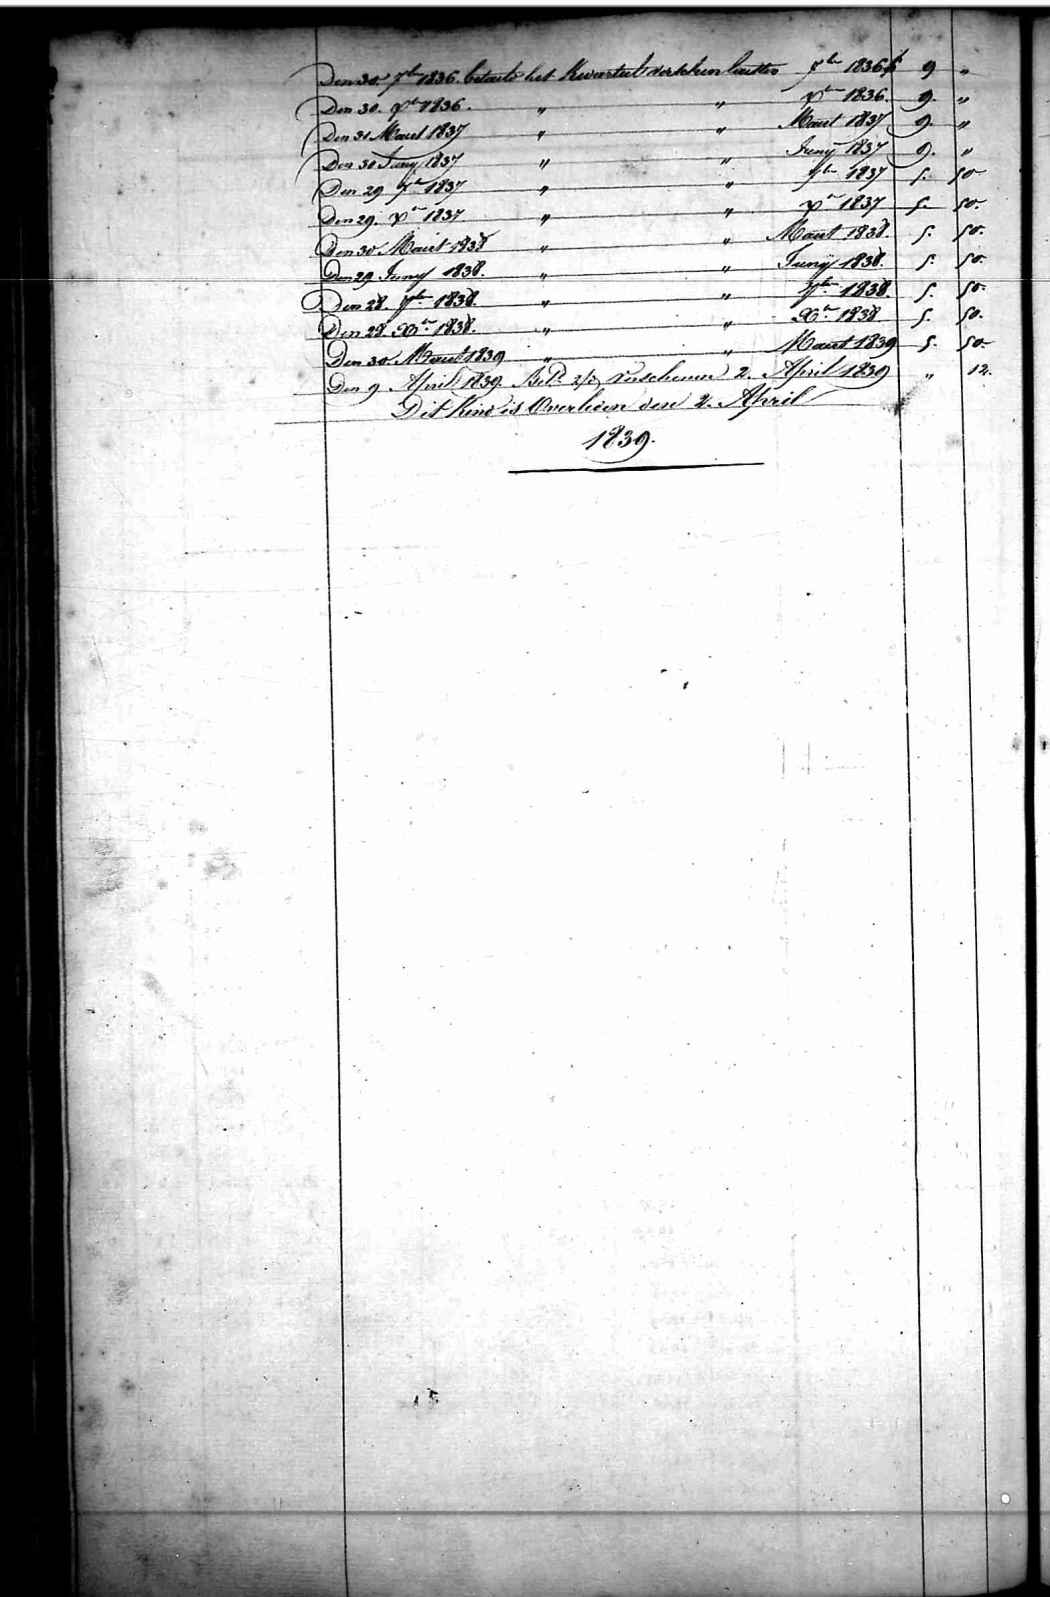 Den 30. 7ber 1836. betaald het kwartaal verschenen laatsten 7ber 1836 f 9 „
Den 30. Xber 1836. „ „ Xber 1836. 9. „
Den 31 Maart 1837 „ „ Maart 1837 9. „
Den 30 Juny 1837 „ „ Juny 1837 9. „
Den 29 7ber 1837 „ „ 7ber 1837 5. 50
Den 29. Xber 1837 „ „ Xber 1837 5. 50.
Den 30 Maart 1838 „ „ Maart 1838. 5. 50.
Den 29 Juny 1838. „ „ Juny 1838. 5. 50.
Den 28. 7ber 1838. „ „ 7ber 1838. 5. 50.
Den 28. Xber 1838. „ „ Xber 1838 5. 50.
Den 30. Maart 1839 „ „ Maart 1839 5. 50
Den 9 April 1839. Verschenen 2. April 1839 „ 12.
Dit kind is Overleden den 2. April
1839.